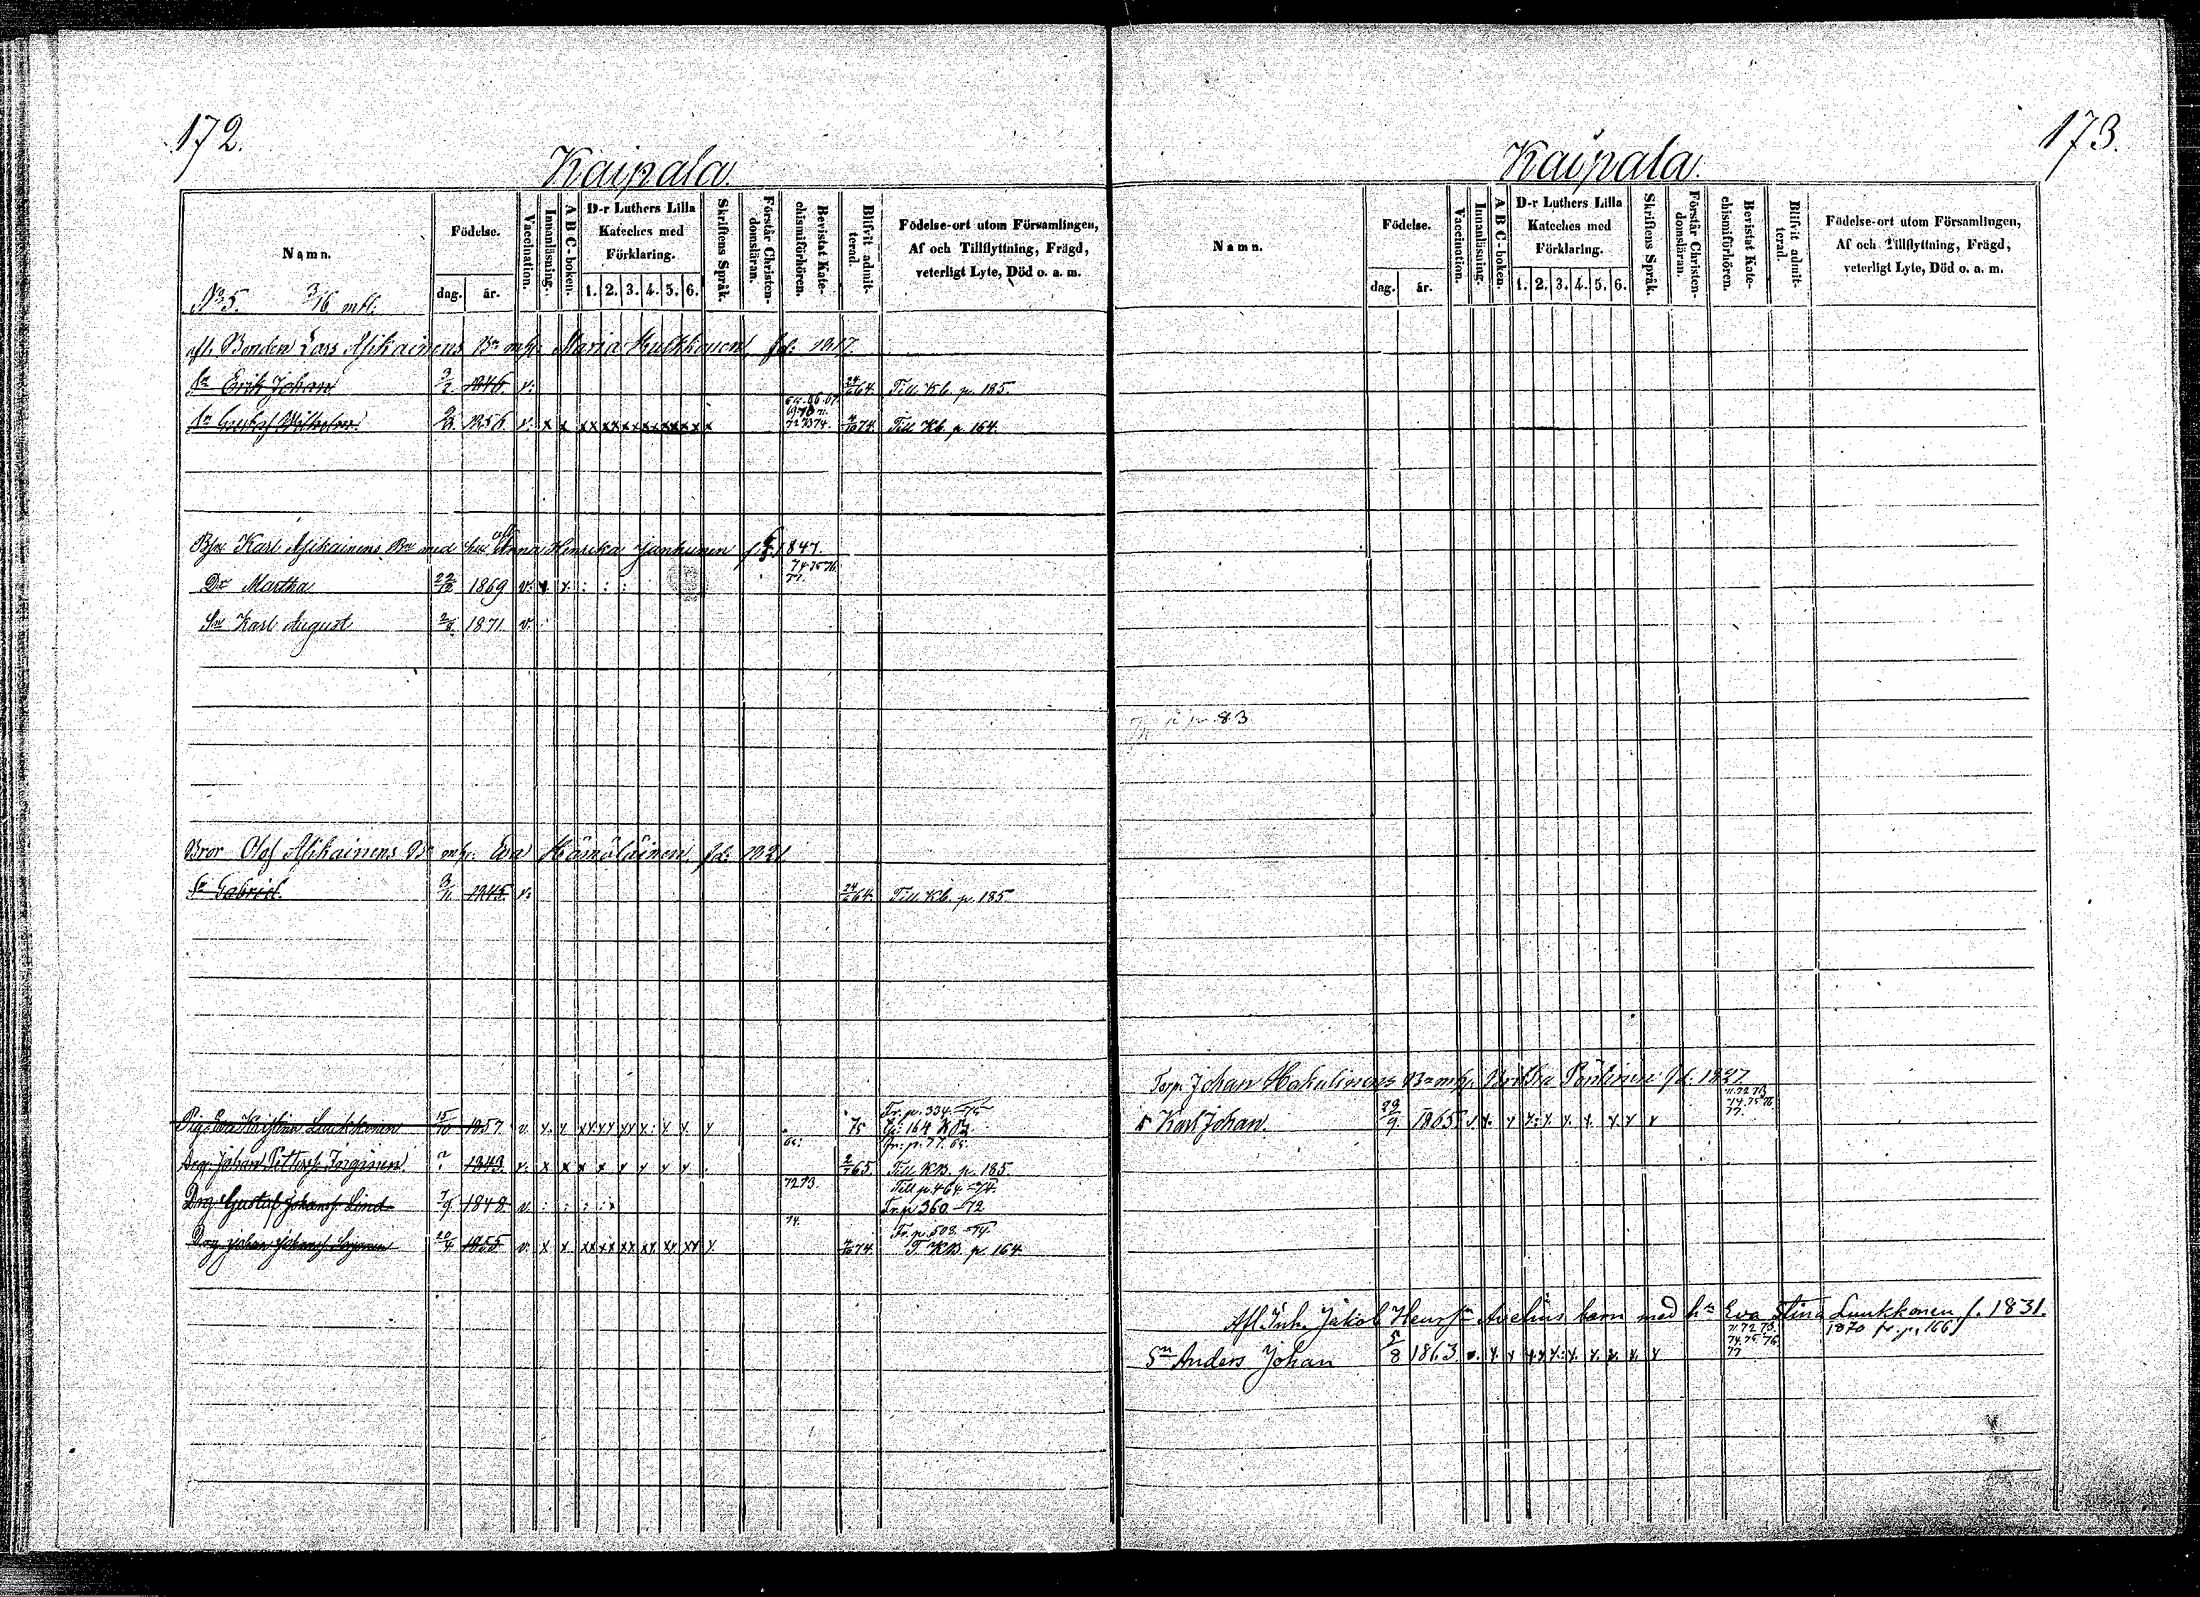 172.
Kaipala.
Namn.
Födelse.
dag. år.
Vaccination.
Innanläsning.
A B C-boken.
D-r Luthers Lilla Kateches med Förklaring.
1. 2. 3. 4. 5. 6.
Skriftens Språk.
Förstår Christen-domsläran.
Bevistat Kate-chismiförhören.
Blifvit admit-terad.
Födelse-ort utom Församlingen,
Af och Tillflyttning, Frägd,
veterligt Lyte, Död o. a. m.
No 5. 3/16 mtl.
afl. Bonden Lars Asikainens Bn m h. Maria Kulkkonen fd: 1817.
Sn Erik Johan 3/2 1846. v: 24/6 64. Till Kb. p. 185.
Sn Gustaf Wilhelm 1856 v: x x xx xx xx xx xx xx x 72 73 74. 74. Till Kb. p. 164.
Bn Karl Asikainens Bn med hu Anna Henrika Janhunen f. 1847.
74 75 76
77.
Dr Martha 22/12 1869 v: x. x. : : :
Sn Karl August 2/8 1871 v. :
Bror Olof Asikainens Bn m h: Eva Hämäläinen fd: 1821
Sn Gabriel. 3/11 1845. v: 24/6 64. Till Kb. p. 185
Fr. p. 334 - 75
Pig. Eva Kristina Luukkonen 15/10 1857 v. x. x xx xx xx x: x x x 75 164 KB
Fr. p. 77. 65.
65:
Drg. Johan Petterss. Jorginen ? 1843 v. x x x x x x x x . 2/7 65. Till KB. p. 185
72 73 Till p. 464 - 74.
Drg Gustaf Johanss. Lind 7/9 1848 v. : : : : x Fr. p 360 - 72
74. Fr. p. 508 - 74.
Drg Johan Johanss. 22/4 1855 v. x x xx xx xx xx xx xx x. 74. T. KB. p. 164
173.
Kaipala.
Namn.
Födelse.
dag. år.
Vaccination.
Innanläsning.
A B C-boken.
D-r Luthers Lilla Kateches med Förklaring.
1. 2. 3. 4. 5. 6.
Skriftens Språk.
Förstår Christen-domsläran.
Bevistat Kate-chismiförhören.
Blifvit admit-terad.
Födelse-ort utom Församlingen,
Af och Tillflyttning, Frägd,
veterligt Lyte, Död o. a. m.
p. 83
Torp. Johan Hakulinens Bn m h. Ulrika Pöyhönen fd. 1827.
71. 72 73.
74. 75 76
77.
S Karl Johan. 29/9 1865 v x. x x: x. x. x. x x x
Afl. Inh. Jakob Henrssn Avelins barn med hu Eva Stina Luukkonen f. 1831.
71. 72 73. 1870 fr. p. 166
74. 75. 76.
77
Sn Anders Johan 5/8 1863. v. x. x xx x: x. x. x. x. x